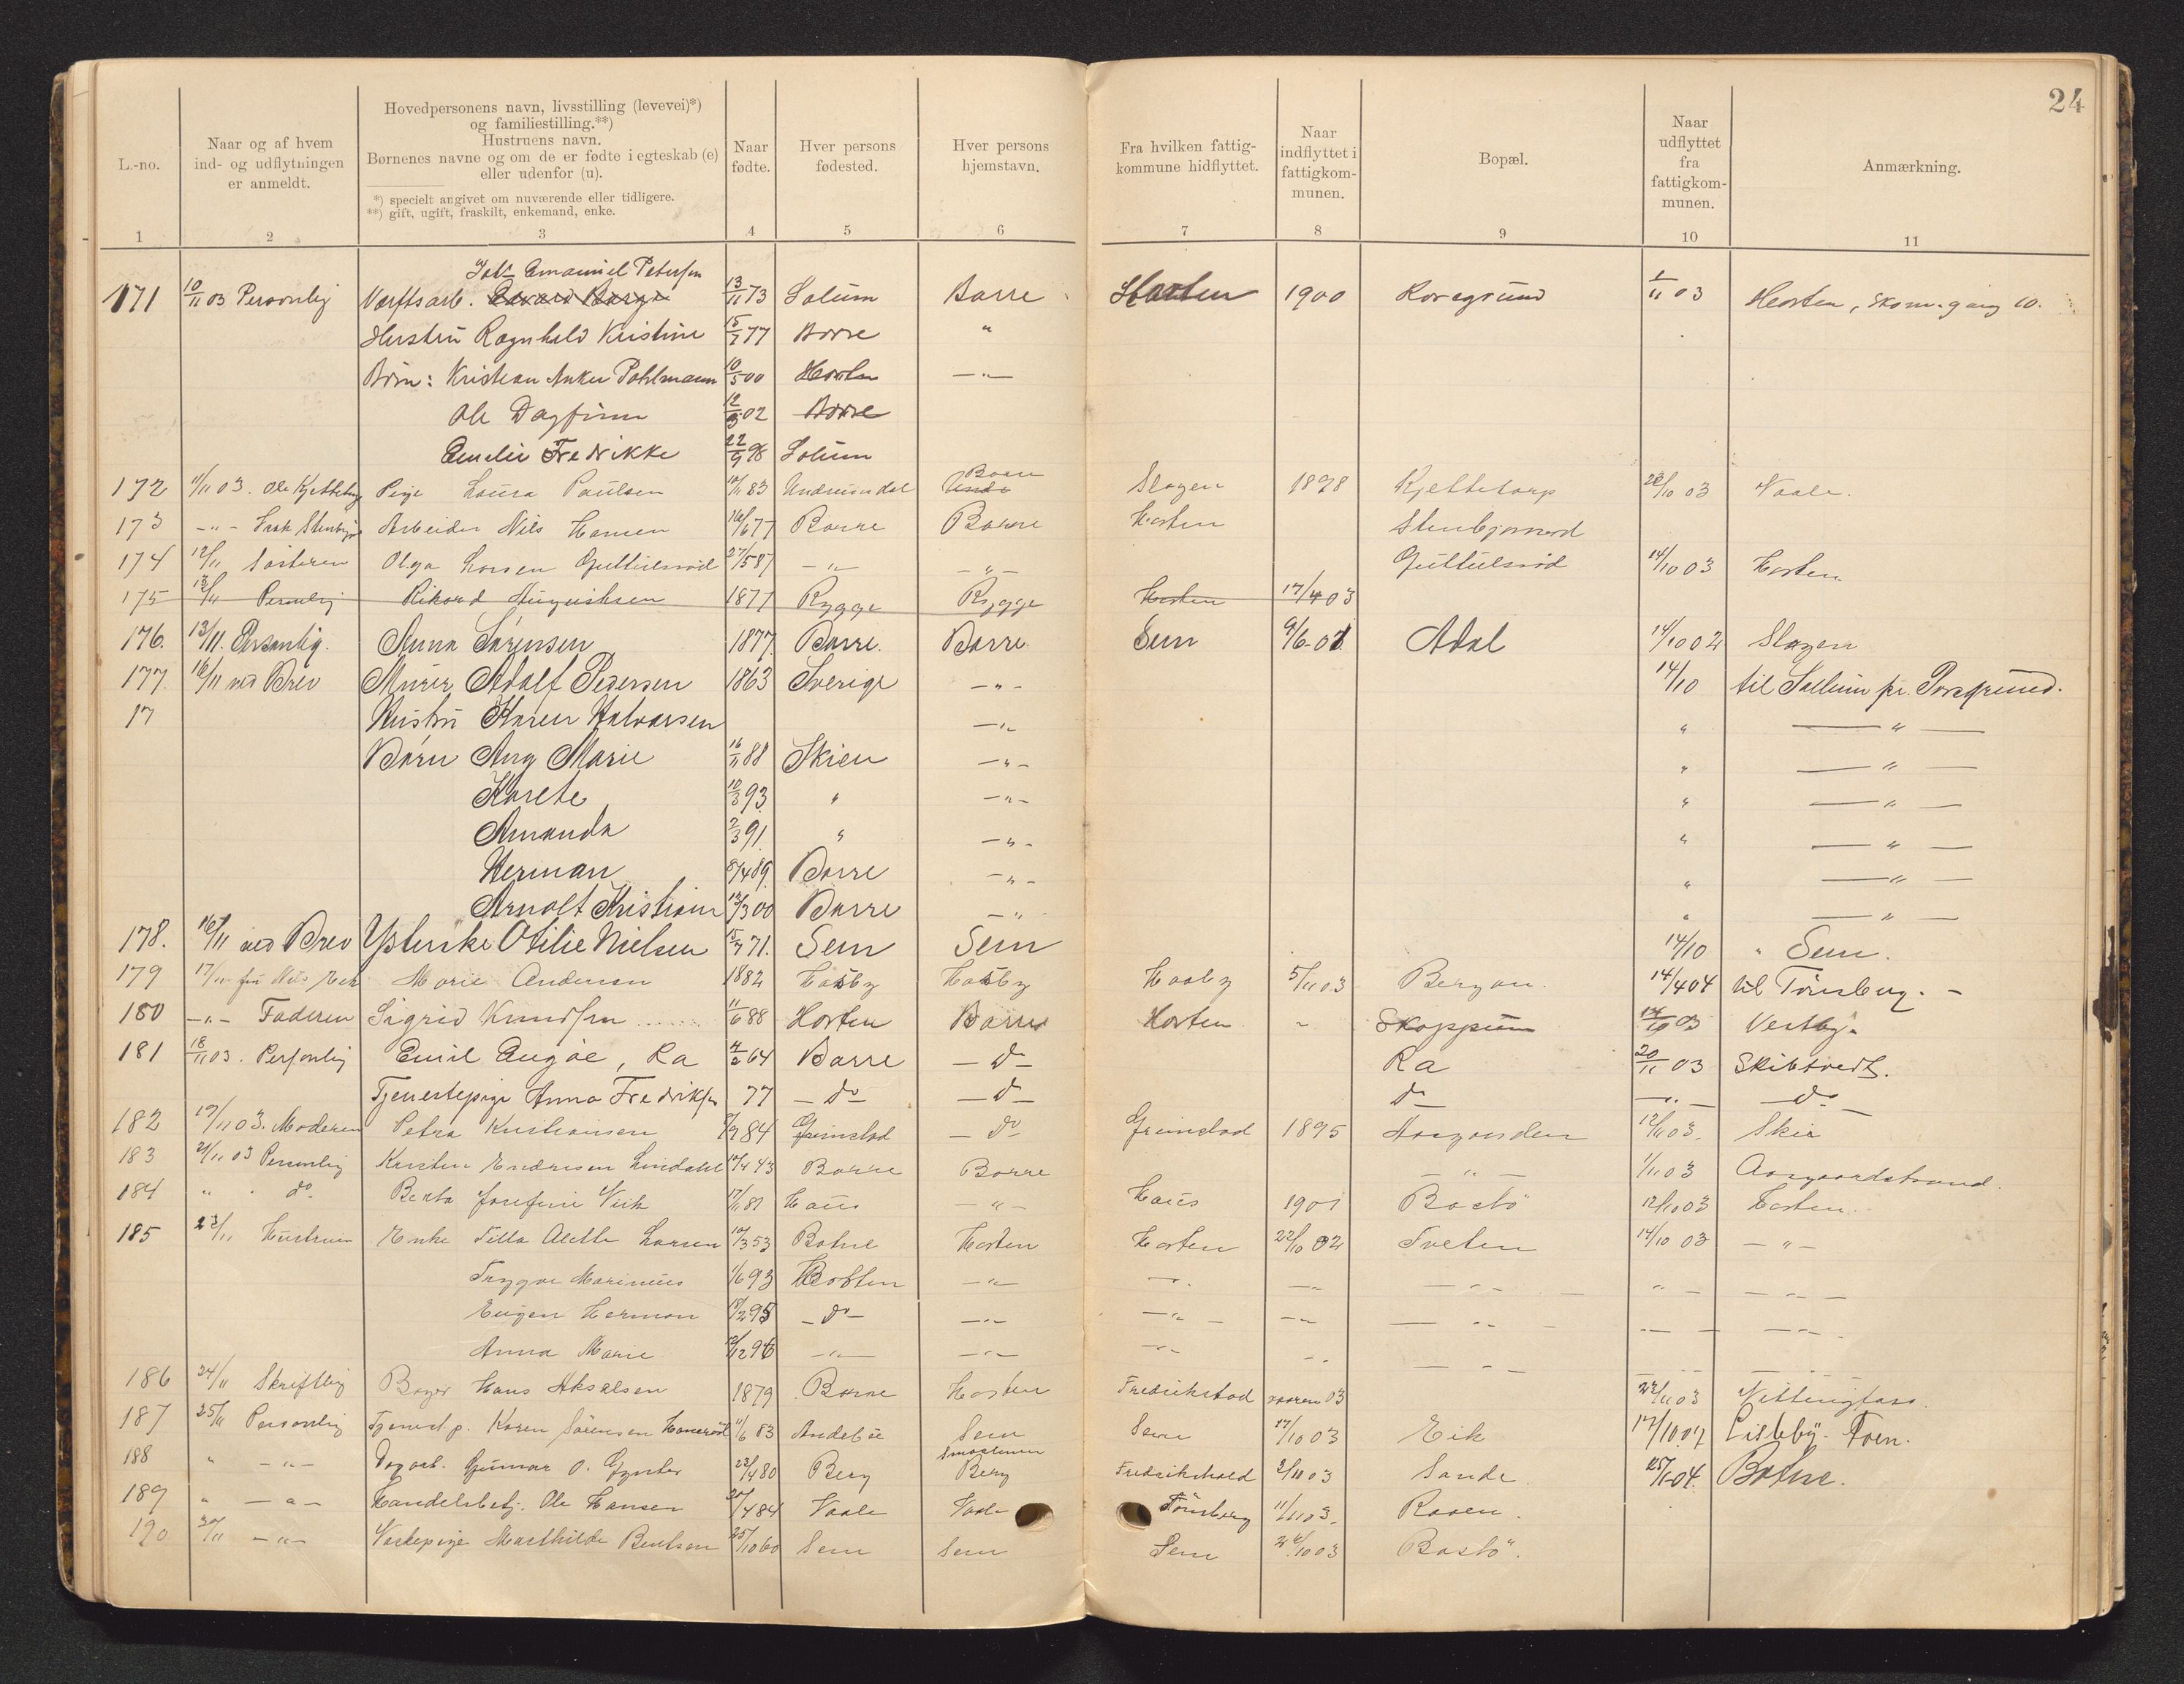 24
L.-no. Naar og af hvem ind- og udflytningen er anmeldt. Hovedpersonens navn, livsstilling (levevei)*) og familiestilling.**) Hustruens navn. Børnenes navne og om de er fødte i egteskab (e) eller udenfor (u). Naar fødte. Hver persons fødested. Hver persons hjemstavn. Fra hvilken fattigkommune hidflyttet. Naar indflyttet i fattigkommunen. Bopæl. Naar udflyttet fra fattigkommunen. Anmærkning.
*) specielt angivet om nuværende eller tidligere.
**) gift, ugift, fraskilt, enkemand, enke.
1 2 3 4 5 6 7 8 9 10 11
Emanuel Petersen
171 10/11 03 Personlig Værftsarb. 13/11 73 Solum Borre Horten 1900 1/11 03 Horten, 10.
Hustru Ragnhald Kristine 15/7 77 Borre "
Børn: Kristian Anker Pohlmann 10/5 00 Horten -"-
Ole Dagfinn 02 Borre
Emelie Fredrikke 22/9 98 Solum
Borre
172 11/11 03. Ole Pige Laura Paulsen 83 Undrumdal Slagen 1898 Kjeltetorp 28/10 03 Vaale.
173 -"- Arbeider Nils Hansen 77 Borre Borre Horten
174 12/11 Søsteren Olga Larsen Guttulsrød 27/5 87 -"- -"- Guttulsrød 14/10 03 Horten
175 13/11 Personlig Rikard Augustsen 1877 Rygge Rygge Horten 17/4 03
176. 13/11. Personlig. Anna Sørensen 1877 Borre. Borre. Sem 9/6-01 Adal 14/10 02 Slagen
177. 16/11 ved Brev Murer Adolf Pedersen 1863 Sverige -"- 14/10 til Sollum pr. Porsgrund.
17 Hustru Karen Halvorsen -"- " -"-
Børn Aug Marie 16/11 88 Skien -"- " -"-
Karete 93 " -"- " -"-
Amanda 2/3 91 " -"- " -"-
Herman 8/4 89. Borre -"- " -"-
Arnolt Kristian 00 Borre -"- " -"-
178. 16/11 ved Brev Otilie Nielsen 15/7 71. Sem Sem 14/10 " Sem.
179 17/11 Marie Andersen 1882 Haaby 5/11 03 14/4 04 til Tønsberg. -
180 -"- Faderen Sigrid Knudsen 11/6 88 Horten Borre Horten " Skoppum 03 Vestby.
181 18/11 03. Personlig Emil Engøe, Ra 64 Borre -do- Ra 20/11 03 Skibtvedt.
Tjenestepige Anna Fredriksen 77 -do- -do- do -"- -do-
182 19/11 03. Moderen Petra Kristiansen 84 Grimstad -do- Grimstad 1895 12/11 03. Skie
183 21/11 03 Personlig Karsten Endresen Lindahl 43 Borre Borre -"- 1/11 03 Aasgaardstrand.
184 " " do Berta Josefine 17/11 81 Haus -"- Haus 1901 Bastø 12/10 03 Horten.
185 23/11 Hustruen Enke Tilla Alette Larsen 10/3 53 Botne Horten Horten 22/10 02 Tveten 14/10 03 -"-
Trygve Marinius 1/6 93 Horten -"- -"- -"- -"- -"- -"-
Eugen Herman 95 -do- -"- -"- -"- -"- -"- -"-
Anna Marie 96 -"- -"- -"- -"- -"- -"- -"-
186 24/11 Skriftlig Bager Hans Aksalsen 1879 Borre Horten Fredrikstad vaaren 03 03
187 25/11 Personlig Tjenestp. Karen Sørensen 11/6 83 Andebu Sem Sem 17/10 03 Eik 17/10.07
188 " -"- Dagarb. Gunnar O. 22/4 80 Berg Berg Fredrikshald 2/11 03 Sande 04. Botne.
189 " -"- Handelsbetj. Ole Hansen 84 Vaale Vaale Tønsberg 11/11 03. Raaen.
190 -"- Vaskepige Marthilde Bentsen 25/10 60 Sem Sem Sem 03 Bastø.